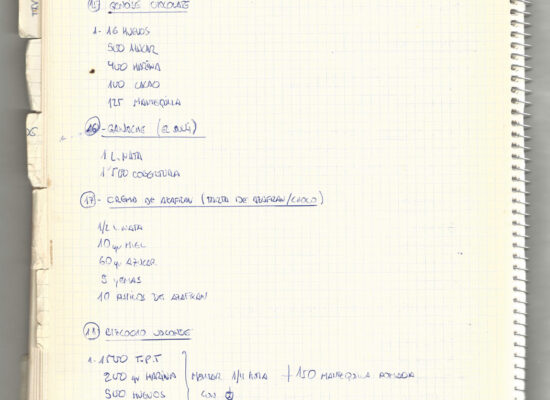 15 GENOISE CHOCOLATE
1- 16 HUEVOS
500 AZUCAR
400 HARINA
100 CACAO
125 MANTEQUILLA
16 - GANACHE (EL BULLI)
1 L. NATA
1'500 COBERTURA
17 - CREMA DE AZAFRAN (TARTA DE AZAFRAN/CHOCO)
1/2 L. NATA
10 gr MIEL
60 gr AZUCAR
5 YEMAS
10 PELLIZCOS DE AZAFRAN
18 BIZCOCHO JOCONDE
1- 1500 T.P.T
200 gr HARINA MONTAR 1/4 HORA + 150 MANTEQUILLA POMADA
500 HUEVOS CON